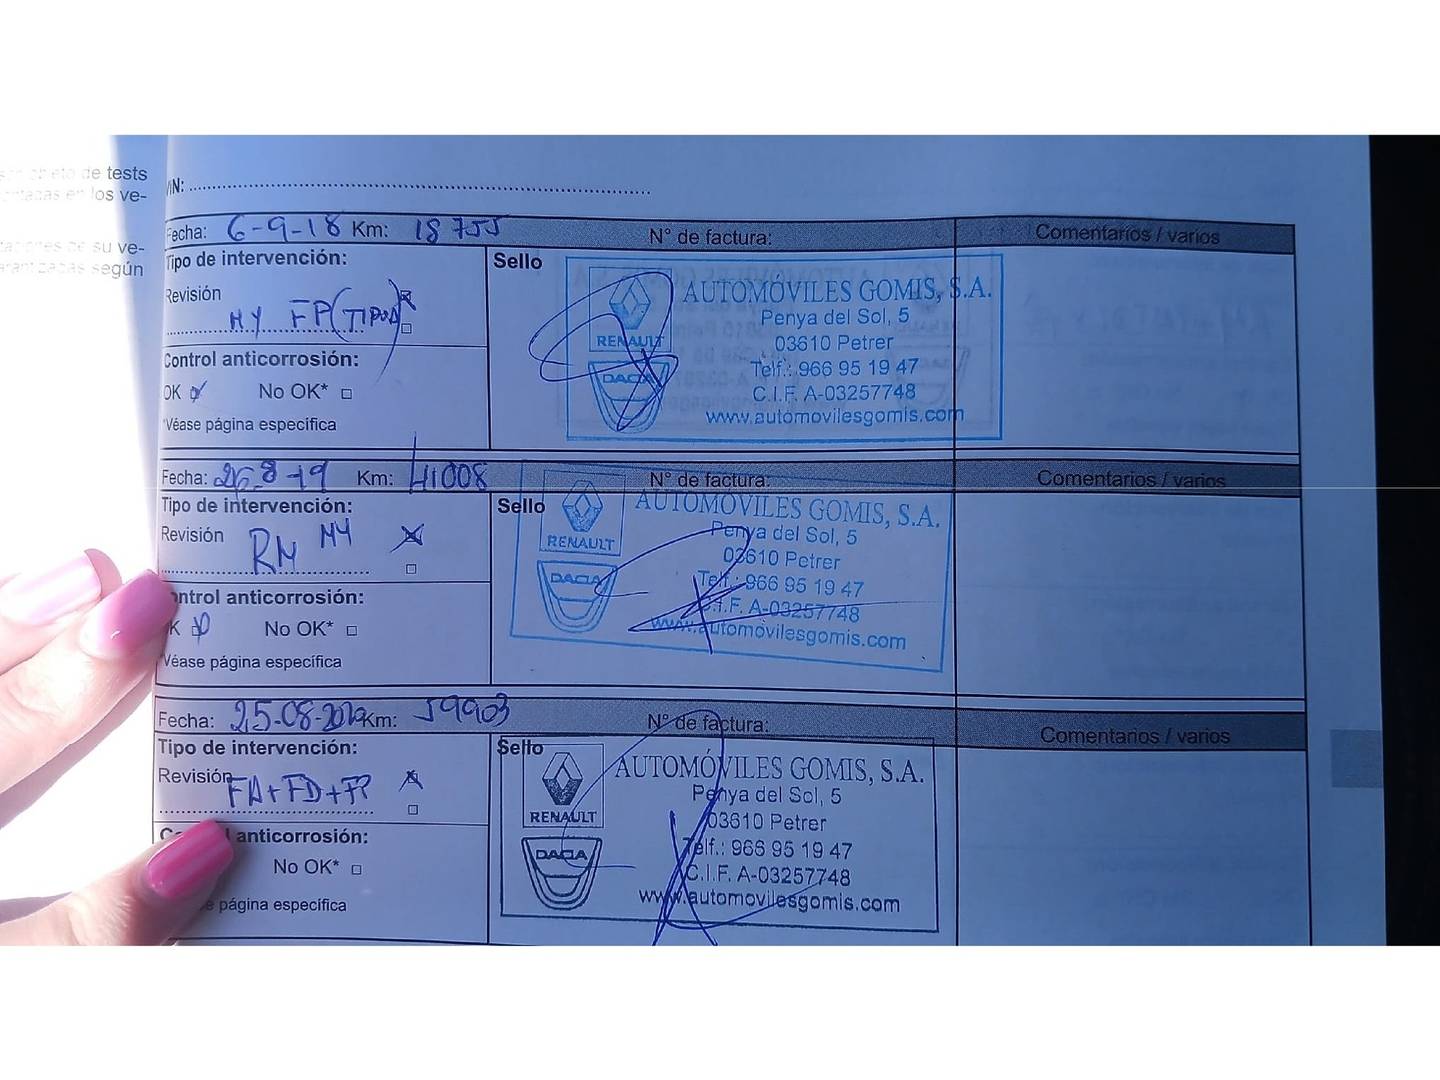 de tests
los ve-
su ve-
según
VIN:
Fecha: 6-9-18 Km: 18755 N° de factura: Comentarios / varios
Tipo de intervención:
Revisión
MY FP(TIPOA)
Control anticorrosión:
OK No OK*
*Véase página específica
Sello
RENAULT
DACIA
AUTOMÓVILES GOMIS, S.A.
Penya del Sol, 5
03610 Petrer
Telf.: 966 95 19 47
C.I.F. A-03257748
www.automovilesgomis.com
Fecha: 26-8-19 Km: 41008 N° de factura: Comentarios / varios
Tipo de intervención:
Revisión
RN MY
ontrol anticorrosión:
K No OK*
*Véase página específica
Sello
RENAULT
DACIA
AUTOMÓVILES GOMIS, S.A.
Penya del Sol, 5
03610 Petrer
Telf.: 966 95 19 47
C.I.F. A-03257748
www.automovilesgomis.com
Fecha: 25-08-2020 Km: 59903 N° de factura: Comentarios / varios
Tipo de intervención:
Revisión
FA+FD+FP
anticorrosión:
No OK*
página específica
Sello
RENAULT
DACIA
AUTOMÓVILES GOMIS, S.A.
Penya del Sol, 5
03610 Petrer
Telf.: 966 95 19 47
C.I.F. A-03257748
www.automovilesgomis.com